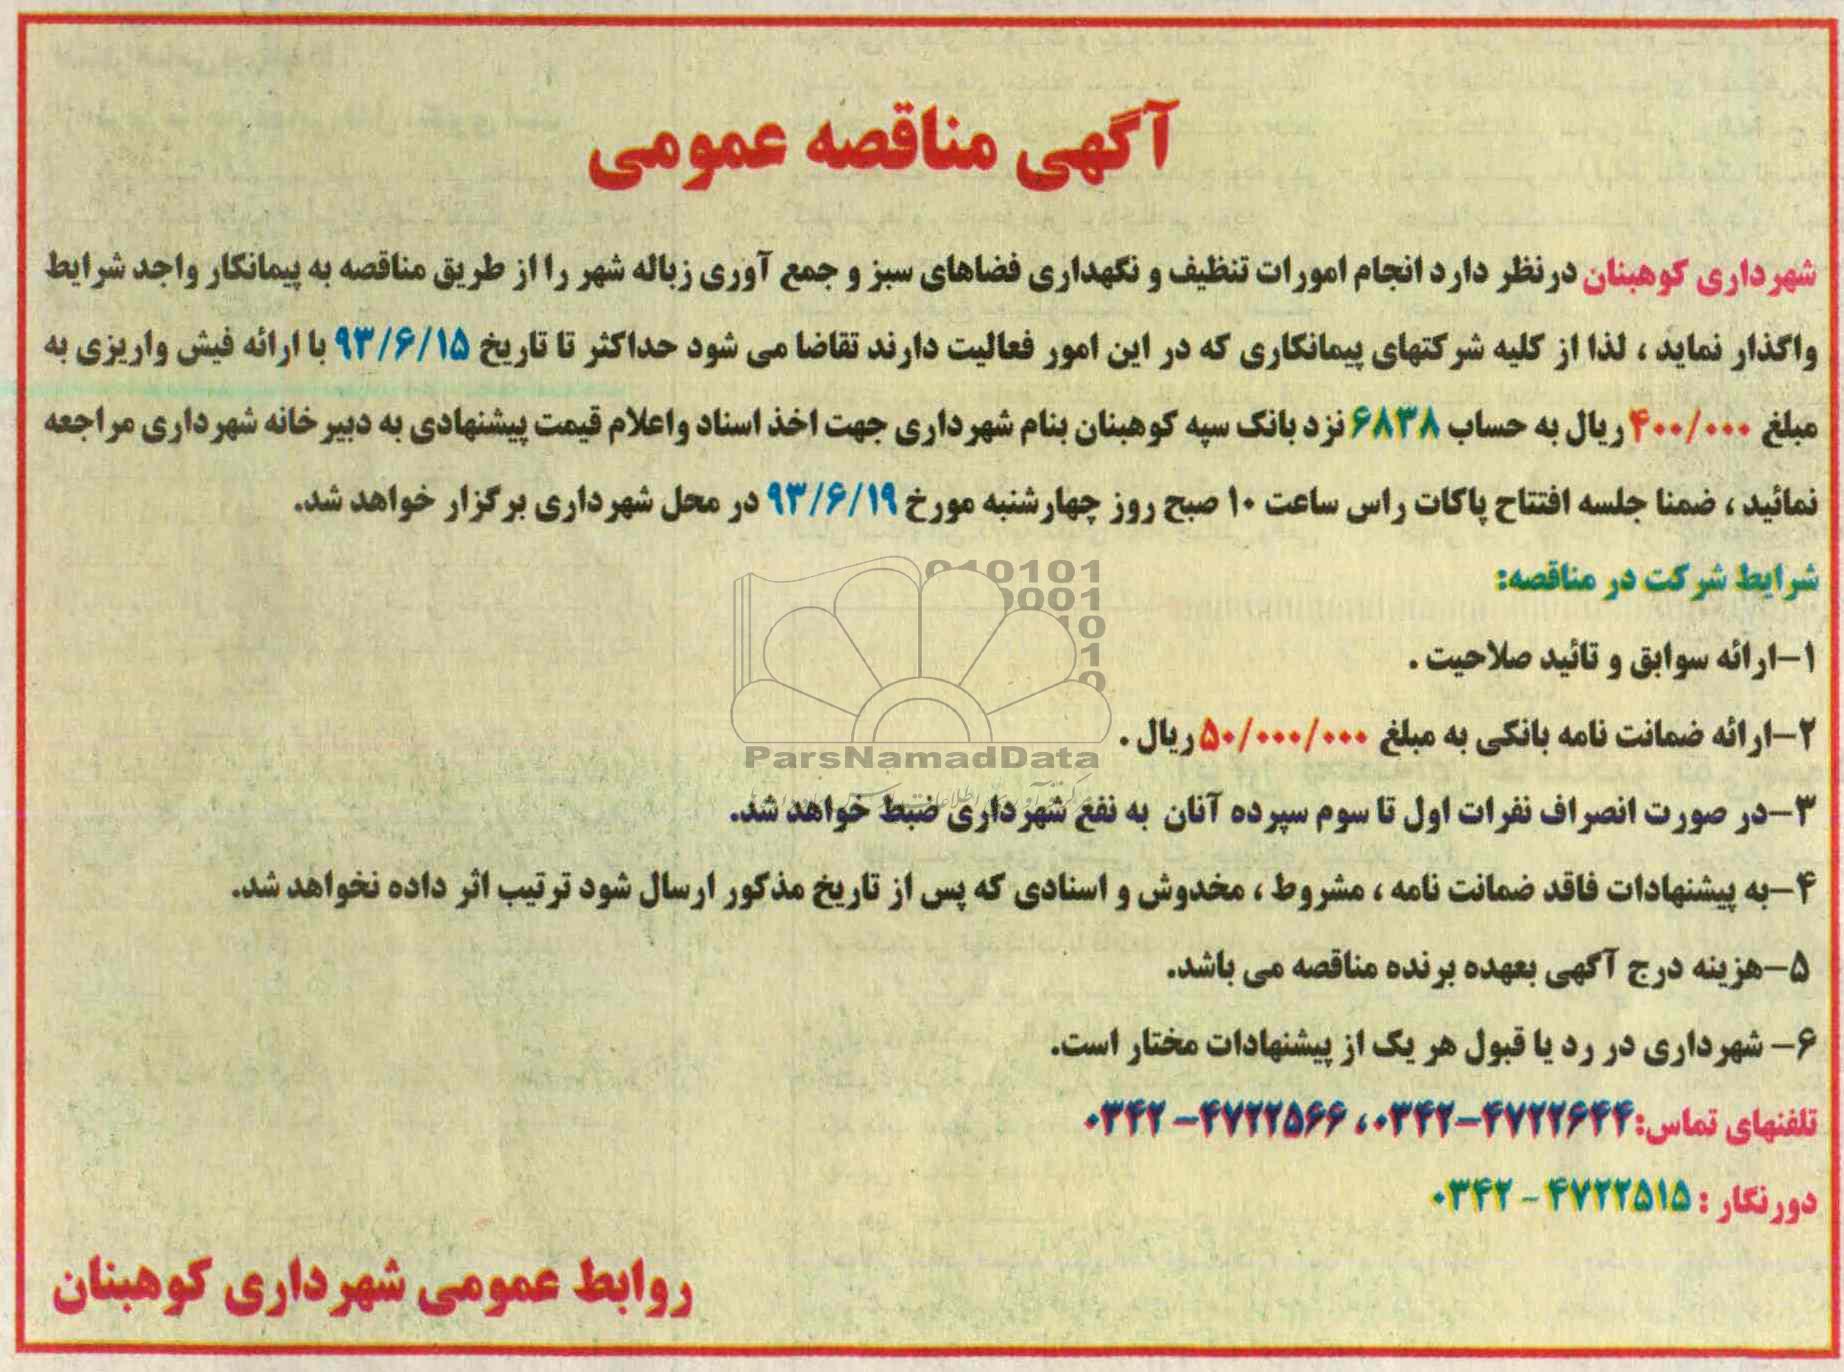 آگهی مناقصه عمومی
شهرداری کوهبنان درنظر دارد انجام امورات تنظیف و نگهداری فضاهای سبز و جمع آوری زباله شهر را از طریق مناقصه به پیمانکار واجد شرایط
واگذار نماید ، لذا از کلیه شرکتهای پیمانکاری که در این امور فعالیت دارند تقاضا می شود حداکثر تا تاریخ ۹۳/۶/۱۵ با ارائه فیش واریزی به
مبلغ ۴۰۰/۰۰۰ ریال به حساب ۶۸۳۸ نزد بانک سپه کوهبنان بنام شهرداری جهت اخذ اسناد واعلام قیمت پیشنهادی به دبیرخانه شهرداری مراجعه
نمائید ، ضمنا جلسه افتتاح پاکات راس ساعت ۱۰ صبح روز چهارشنبه مورخ ۹۳/۶/۱۹ در محل شهرداری برگزار خواهد شد.
شرایط شرکت در مناقصه:
۱-ارائه سوابق و تائید صلاحیت .
۲-ارائه ضمانت نامه بانکی به مبلغ ۵۰/۰۰۰/۰۰۰ ریال .
ParsNamadData
۳-در صورت انصراف نفرات اول تا سوم سپرده آنان به نفع شهرداری ضبط خواهد شد.
۴-به پیشنهادات فاقد ضمانت نامه ، مشروط ، مخدوش و اسنادی که پس از تاریخ مذکور ارسال شود ترتیب اثر داده نخواهد شد.
۵-هزینه درج آگهی بعهده برنده مناقصه می باشد.
۶- شهرداری در رد یا قبول هر یک از پیشنهادات مختار است.
تلفنهای تماس: ۴۷۲۲۶۴۴-۰۳۴۲ ، ۴۷۲۲۵۶۶- ۰۳۴۲
دورنگار : ۴۷۲۲۵۱۵ - ۰۳۴۲
روابط عمومی شهرداری کوهبنان